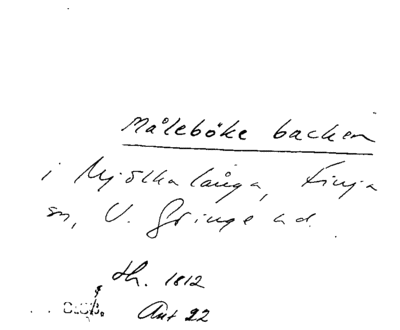 Måleböke backen
i Mjölkalånga, Finja
sn, V. Göinge hd.
th. 1812
Akt 22